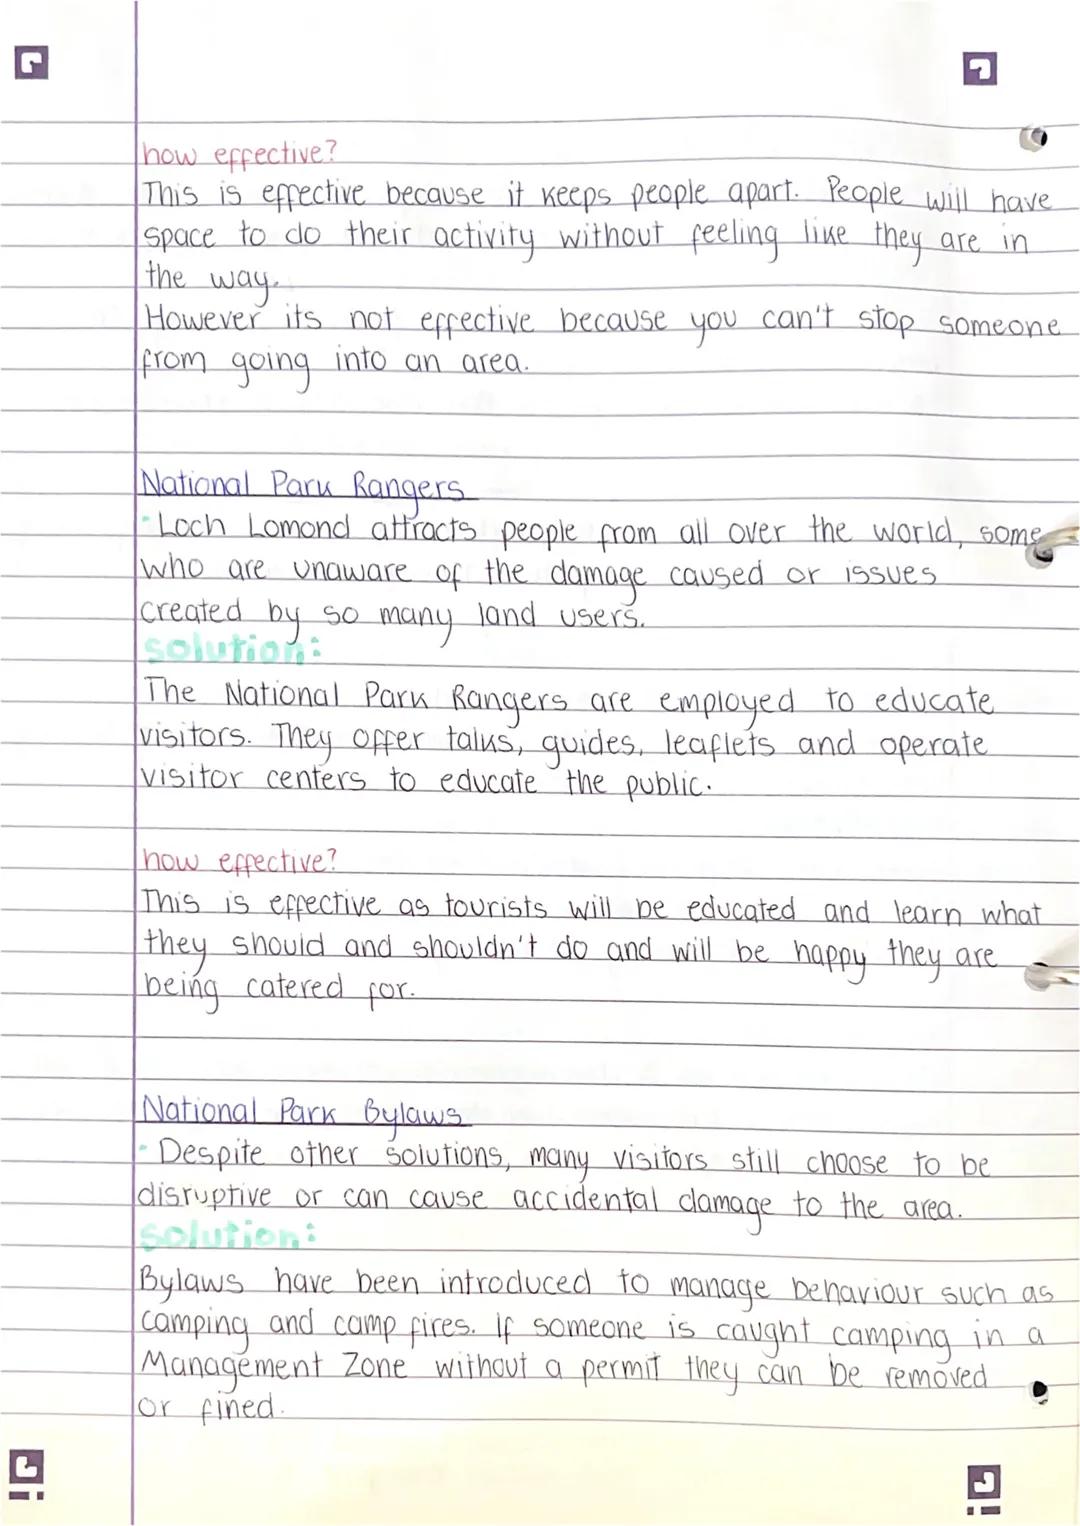 how effective?
This is effective because it keeps people apart. People will have
space to do their activity without feeling like they are in
the way.
However its not effective because you can't stop someone
from going into an area.
National Park Rangers
- Loch Lomond attracts people from all over the world, some
who are unaware of the damage caused or issues
created by so many land users.
solution:
The National Park Rangers are employed to educate
visitors. They offer talks, guides, leaflets and operate
visitor centers to educate the public.
how effective?
This is effective as tourists will be educated and learn what
they should and shouldn't do and will be happy they are
being catered for.
National Park Bylaws
- Despite other solutions, many visitors still choose to be
disruptive or can cause accidental damage to the area.
solution:
Bylaws have been introduced to manage behaviour such as
camping and camp fires. If someone is caught camping in a
Management Zone without a permit they can be removed
or fined.